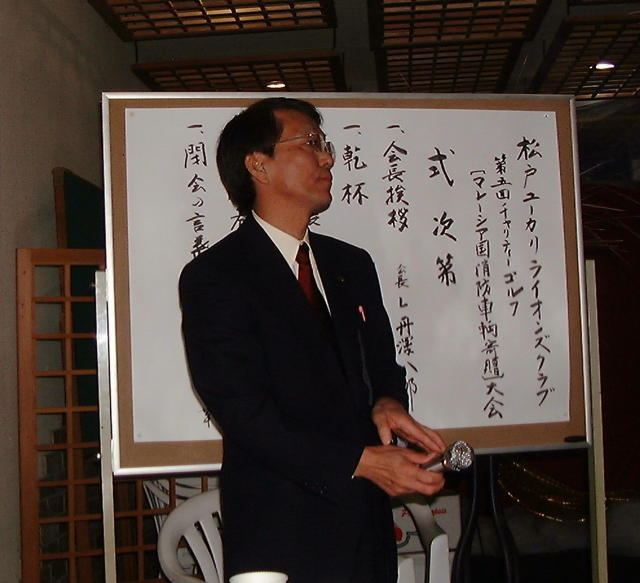 松戸ユーカリライオンズクラブ
第五回チャリティーゴルフ
〔マレーシア国消防車輌寄贈〕大会
式次第
一、会長挨拶
会長 L 丹澤八郎
一、乾杯
一、閉会の言葉